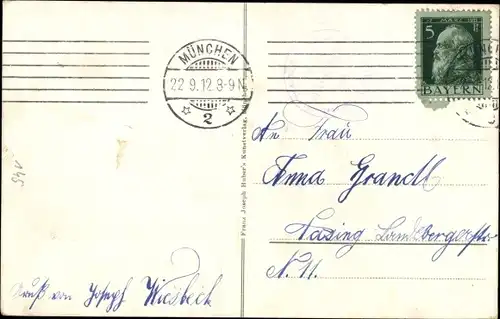 MÜNCHEN
22.9.12.8-9N.
☆ 2 ☆
5
BAYERN
Franz Joseph Huber's Kunstverlag,
An Frau
Anna Grandl
Pasing Landsbergerstr
N. 11.
Gruß von Joseph Wiesbeck